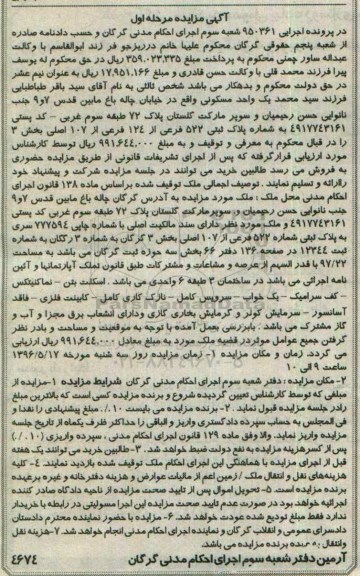 آگهی مزایده مرحله اول
در پرونده اجرایی ۹۵۰۳۶۱ شعبه سوم اجرای احکام مدنی گرگان و حسب دادنامه صادره
از شعبه پنجم حقوقی گرگان محکوم علیها خانم دررپزجو فر زند ابوالقاسم با وکالت
عبداله ساور چملی محکوم به پرداخت مبلغ ۳۵۹.۰۲۳.۳۳۵ ریال در حق محکوم له یوسف
پیرا فرزند محمد قلی با وکالت حسن قادری و مبلغ ۱۷.۹۵۱.۱۶۶ ریال به عنوان نیم عشر
در حق دولت محکوم و بدهکار می باشد شخص ثالثی به نام آقای سید باقر طباطبایی
فرزند سید محمد یک واحد مسکونی واقع در خیابان چاله باغ مابین قدس ۷و۹ جنب
نانوایی حسن رحیمیان و سوپر مارکت گلستان پلاک ۷۲ طبقه سوم غربی - کد پستی
۴۹۱۷۷۴۳۱۶۱ به شماره پلاک ثبتی ۵۲۲ فرعی از ۱۲۴ فرعی از ۱۰۷ اصلی بخش ۳
را در قبال محکوم به معرفی و توقیف و به مبلغ ۹۹۱.۶۴۴.۰۰۰ ریال توسط کارشناس
مورد ارزیابی قرارگرفته که پس از اجرای تشریفات قانونی از طریق مزایده حضوری
به فروش می رسد طالبین خرید می توانند در جلسه مزایده شرکت و پیشنهاد خود
راارائه و تسلیم نمایند . توصیف اجمالی ملک توقیف شده براساس ماده ۱۳۸ قانون اجرای
احکام مدنی محل ملک : ملک مورد مزایده به آدرس گرگان چاله باغ مابین قدس ۷و۹
جنب نانوایی حسن رحیمیان و سوپرمارکت گلستان پلاک ۷۲ طبقه سوم غربی کد پستی
۴۹۱۷۷۴۳۱۶۱ و ملک مورد نظر دارای سند مالکیت اصلی با شماره چاپی ۷۷۷۵۹۴ سری
به پلاک ثبتی شماره ۵۲۲ فرعی از ۱۰۷ اصلی بخش ۳ گرگان به شماره ۳ گرگان به شماره
ثبت ۱۲۳۴۴ در صفحه ۱۳۶ دفتر ۶۶ بخش سه حوزه ثبت گرگان می باشد به مساحت
۹۷/۲۲ با قدر السهم از عرصه و مشاعات و مشترکات طبق قانون تملک آپارتمانها و آئین
نامه اجرائی می باشد در ساختمان ۳ طبقه ۶ واحدی می باشد . اسکلت بتن - نماکنیتکس
- کف سرامیک - یک خواب - سرویس کامل - نازک کاری کامل - کابینت فلزی - فاقد
آسانسور - سرمایش کولر و گرمایش بخاری گازی ودارای انشعاب برق مجزا و آب و
گاز مشترک می باشد . بابررسی بعمل آمده با توجه به موقعیت و مساحت و بادر نظر
گرفتن جمیع عوامل موثردر قضیه ملک مورد به مبلغ معادل ۹۹۱.۶۴۴.۰۰۰ ریال ارزیابی
می گردد. زمان و مکان مزایده ۱- زمان مزایده روز سه شنبه مورخه ۱۳۹۶/۵/۱۷
ساعت ۹ الی ۱۰
۲- مکان مزایده : دفتر شعبه سوم اجرای احکام مدنی گرگان شرایط مزایده ۱-مزایده از
مبلغی که توسط کارشناس تعیین گردیده شروع و برنده مزایده کسی است که بالاترین مبلغ
رادر جلسه مزایده قبول نماید . ۲- برنده مزایده می بایست ۱۰٪ مبلغ پیشنهادی را نقدا و
فی المجلس به حساب سپرده دادگستری واریز و الباقی را حداکثر ظرف یکماه از تاریخ جلسه
مزایده واریز نماید. والا وفق ماده ۱۲۹ قانون اجرای احکام مدنی ، سپرده واریزی (۱۰٪)
پس از کسرهزینه مزایده به نفع دولت ضبط خواهد شد . ۳-طالبین خرید می توانند یک هفته
قبل از اجرای مزایده با هماهنگی این اجرای احکام ملک توقیف شده بازدید نمایند. ۴- کلیه
هزینه‌های نقل و انتقال ملک / زمین اعم از مالیات عوارض و هزینه دفترخانه و غیره برعهده
برنده مزایده است. ۵- تحویل اموال پس از تایید صحت مزایده از ناحیه دادگاه صادر کننده
اجرائیه خواهد بود در صورت عدم تایید صحت مزایده این اجرا مسولیتی در رابطه با خریدار
ندارد فقط مبلغ تودیع شده عودت خواهد شد. ۶- مزایده با حضور نماینده محترم دادستان
دادسرای عمومی و انقلاب گرگان و نماینده اجرای احکام مدنی انجام خواهد شد. ۷-هزینه نقل
وانتقال به عهده برنده مزایده می باشد.
آرمین دفتر شعبه سوم اجرای احکام مدنی گرگان ۴۶۷۴